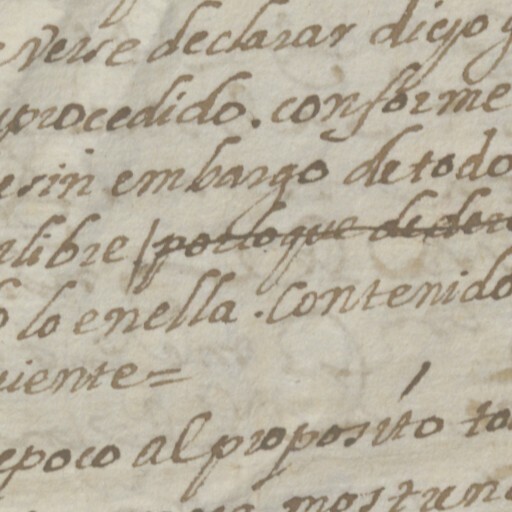 verse declarar digo q
procedido. conforme
esin embargo de todo
libre / por lo que de dere
o lo enella. Contenido
uiente=
epoco al proposito to
mostran